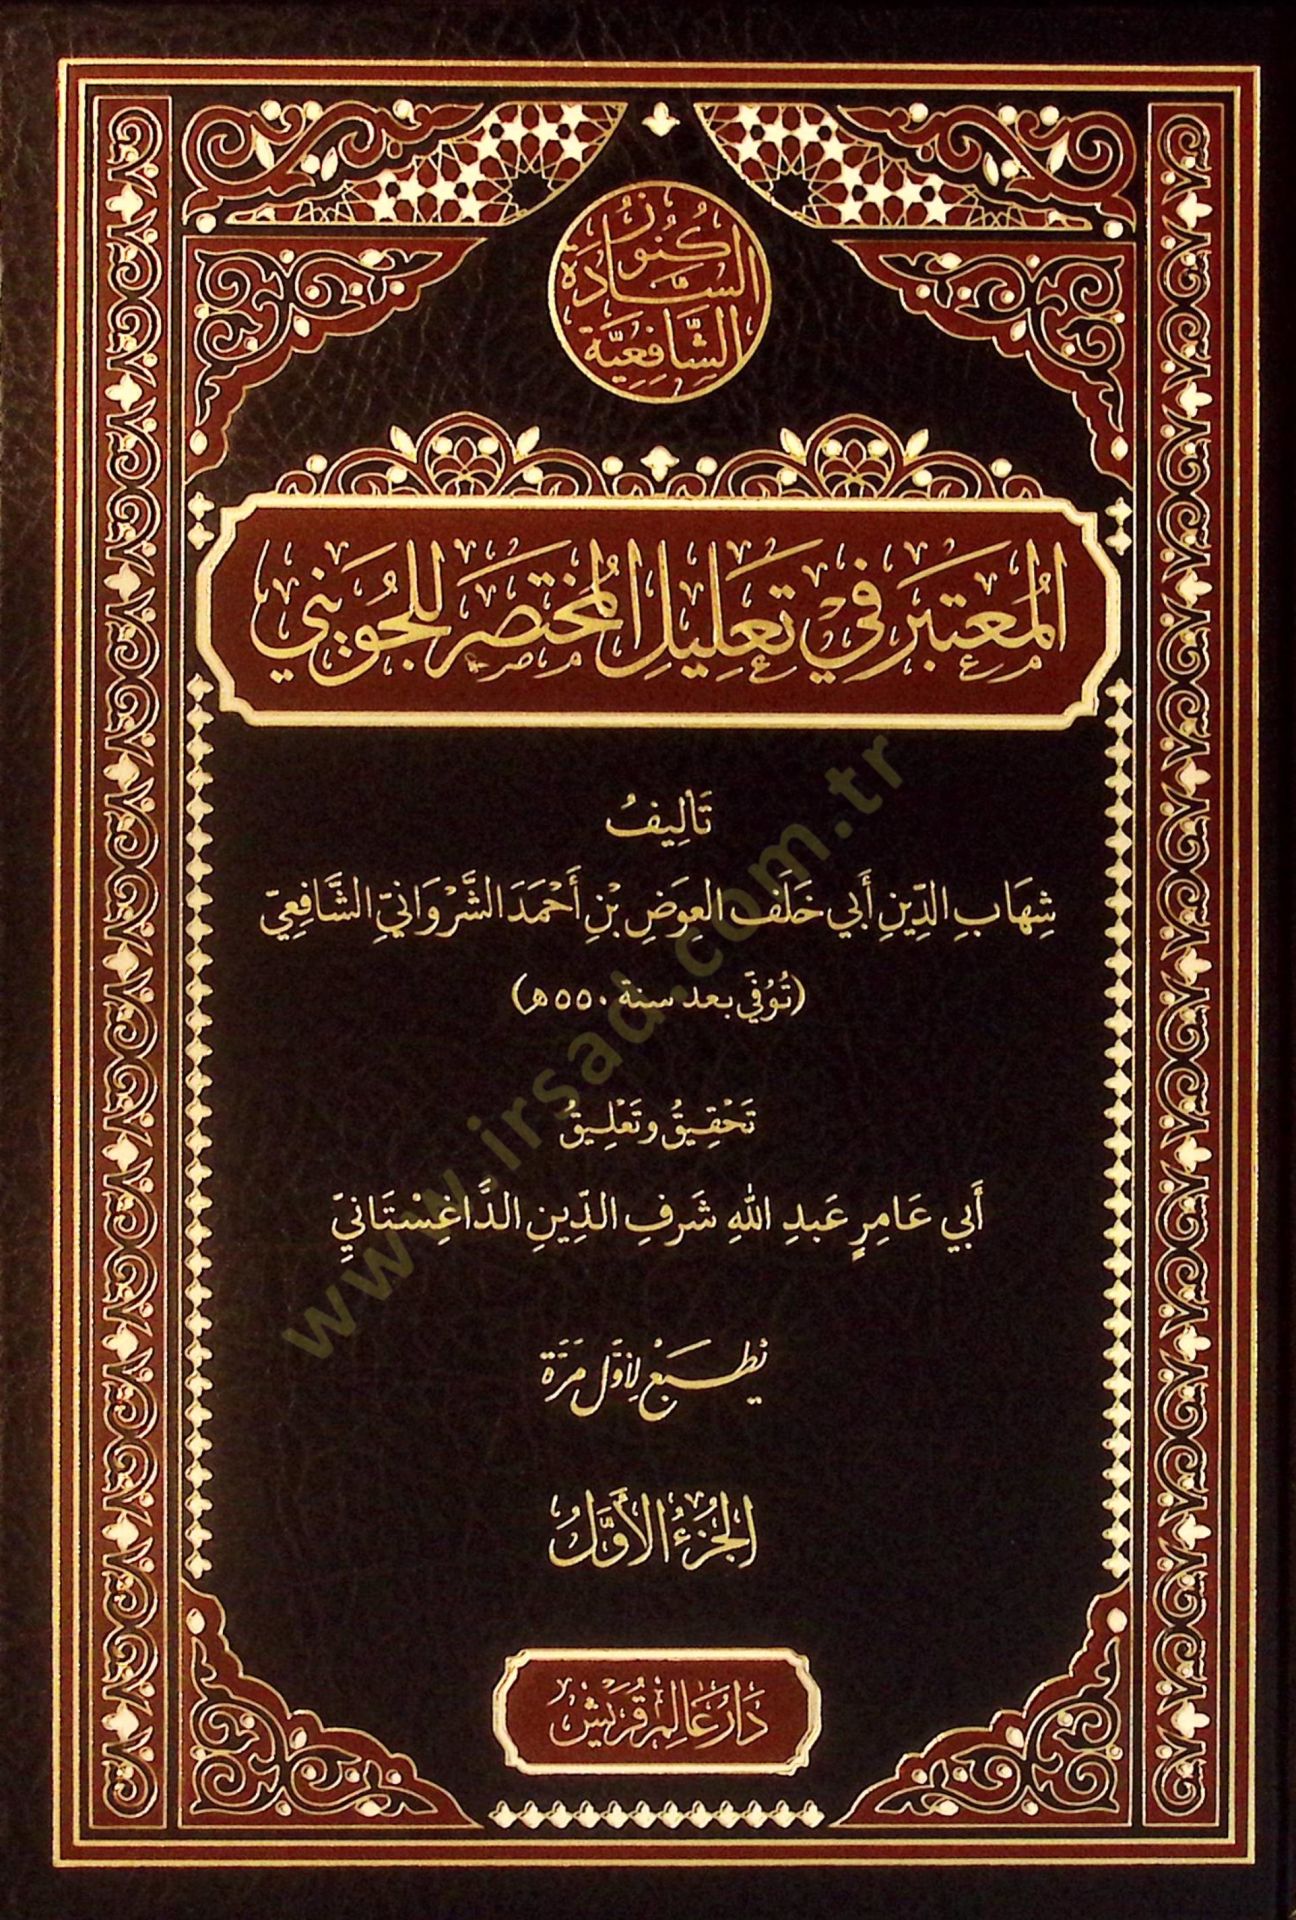 كُنُوزُ
السَّادَةِ
الشَّافِعِيَّة
المُعتَبَر فِي تَعلِيلِ المُختَصَر لِلجُوَينِي
تَأْلِيفُ
شِهَابِ الدِّينِ أَبِي خَلَفٍ العِوَضِ بْنِ أَحْمَدَ الشَّرْوَانِيِّ الشَّافِعِيِّ
(تُوُفِّيَ بعد سنة ٥٥٠ هـ)
تَحْقِيقُ وتَعْلِيقُ
أَبِي عَامِرٍ عَبدِ اللهِ شَرَفِ الدِّينِ الدَّاغِسْتَانِيِّ
يُطبَعُ لِأَوَّلِ مَرَّة
الجُزْءُ الأَوَّلُ
دَارُ عَالَمِ قُرَيْش
www.irsad.com.tr